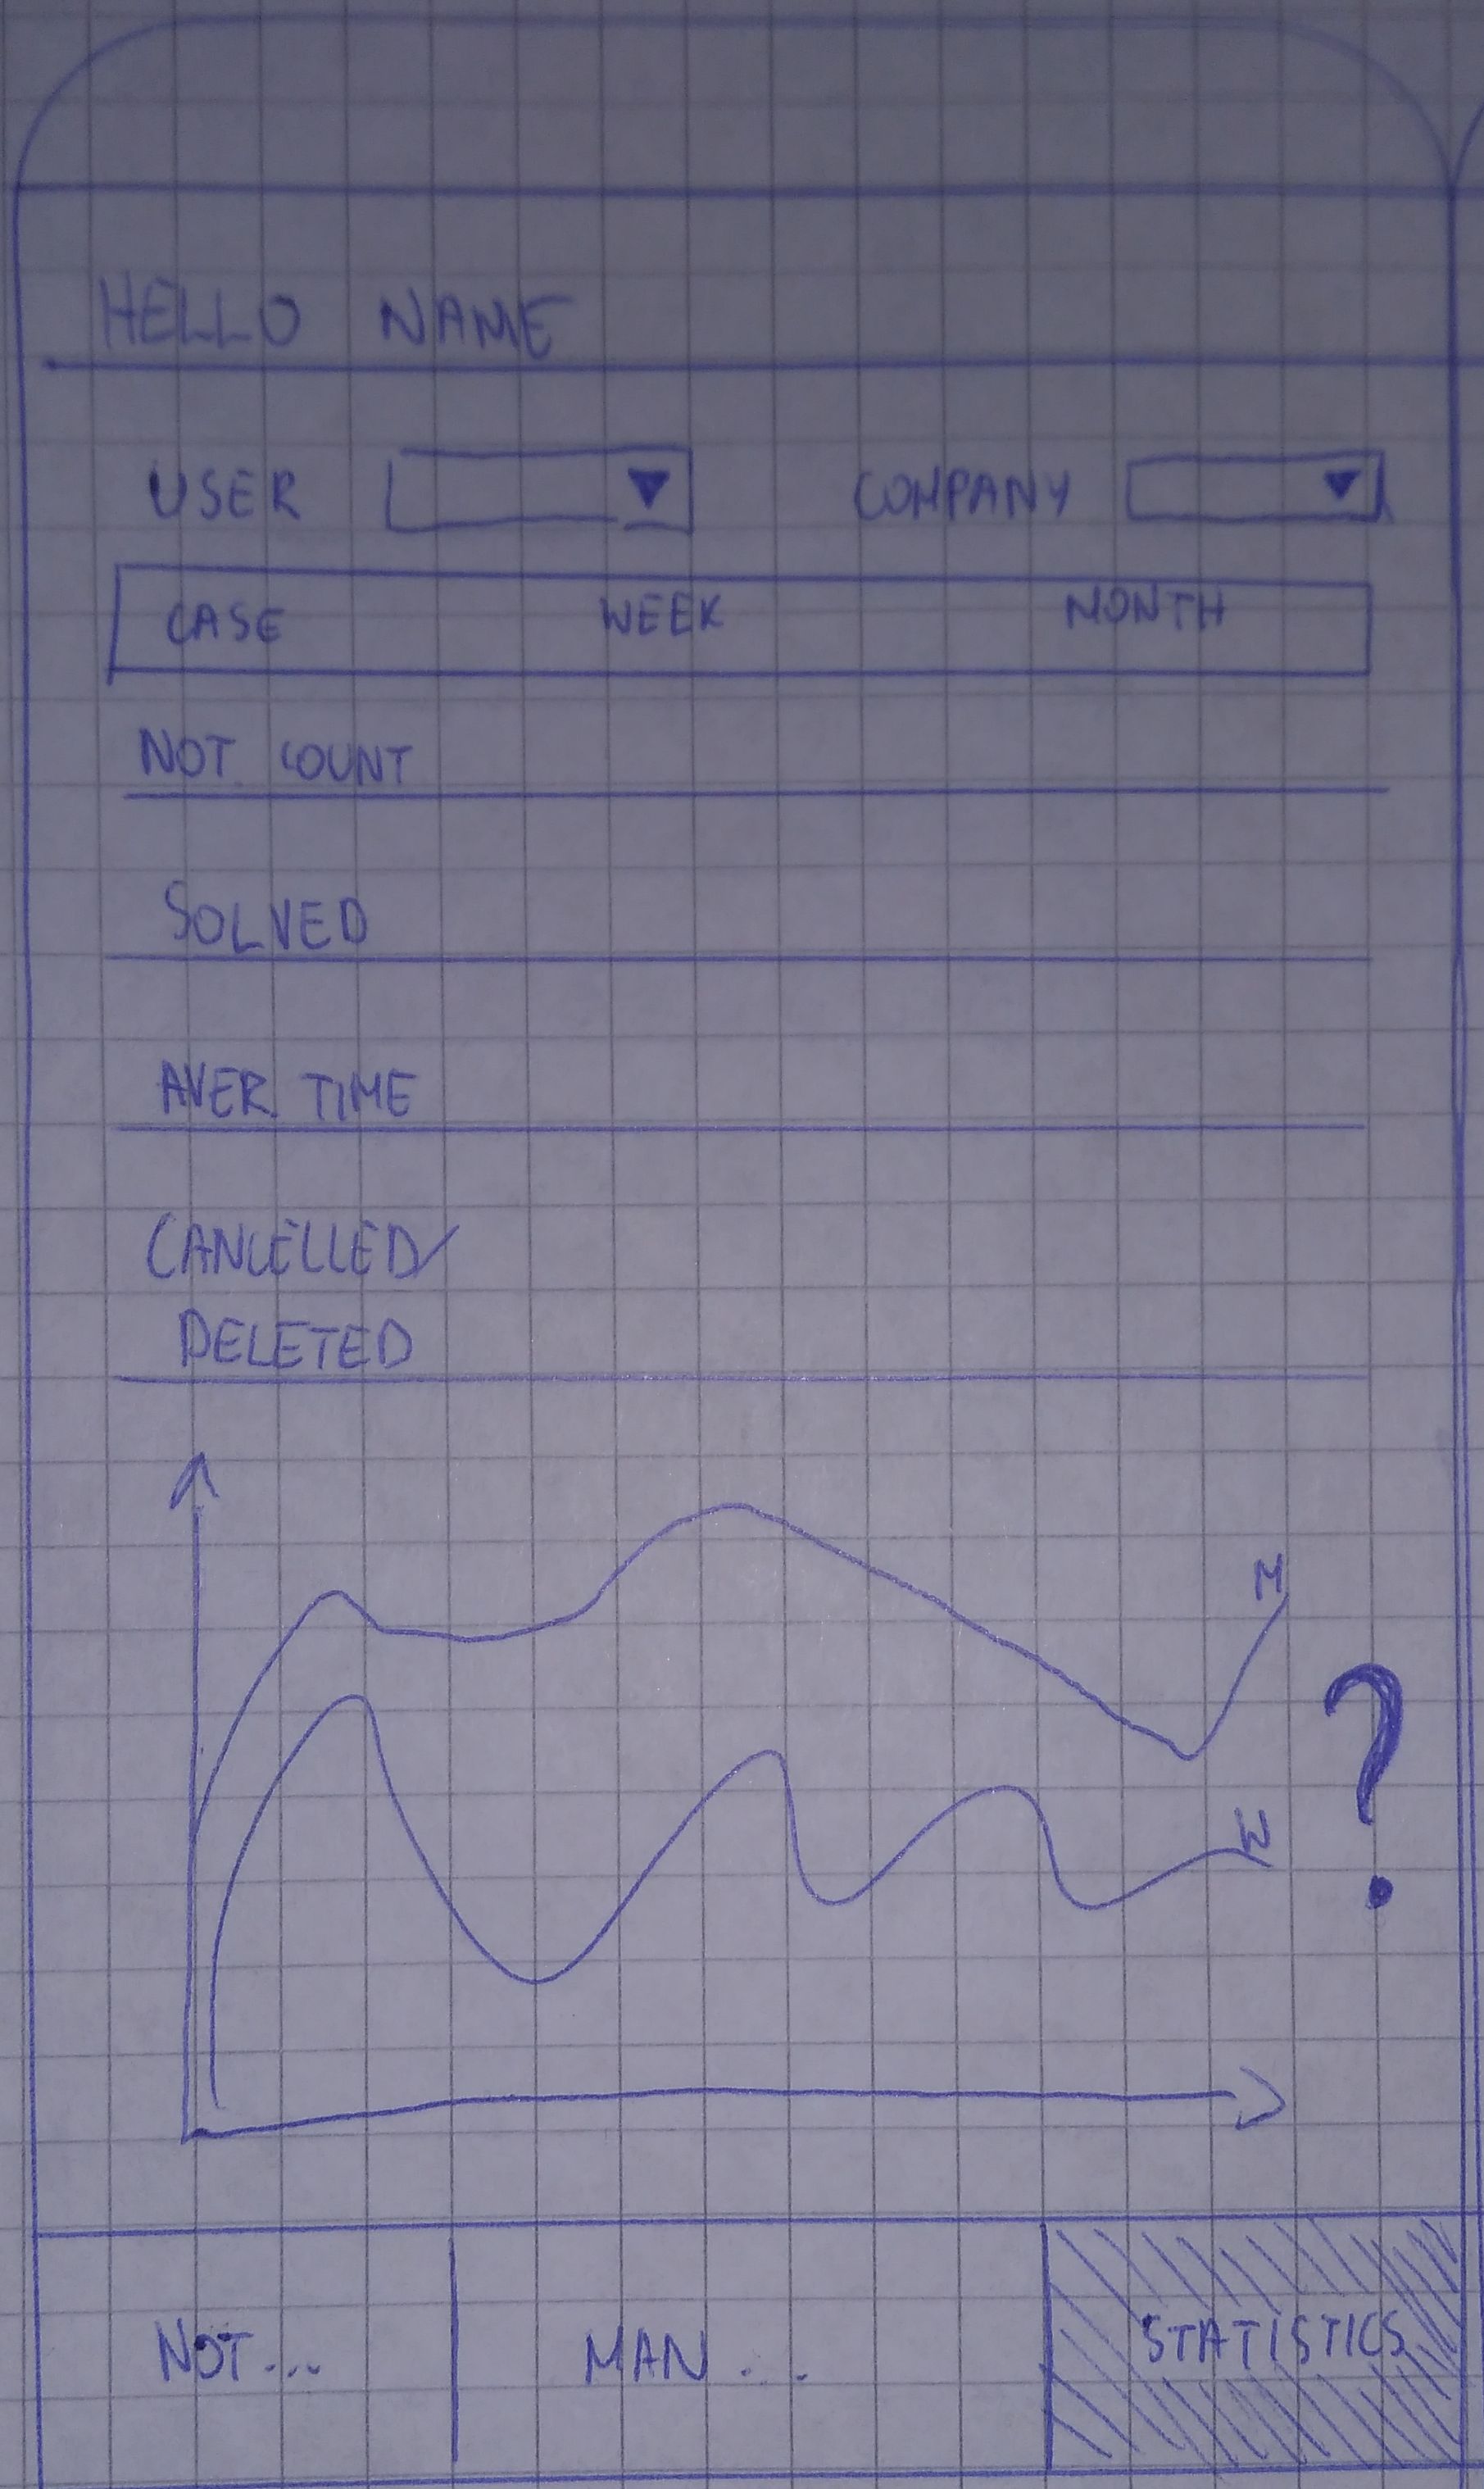 HELLO NAME
USER COMPANY
CASE WEEK MONTH
NOT. COUNT
SOLVED
AVER. TIME
CANCELLED/
DELETED
M
?
W
NOT... MAN... STATISTICS